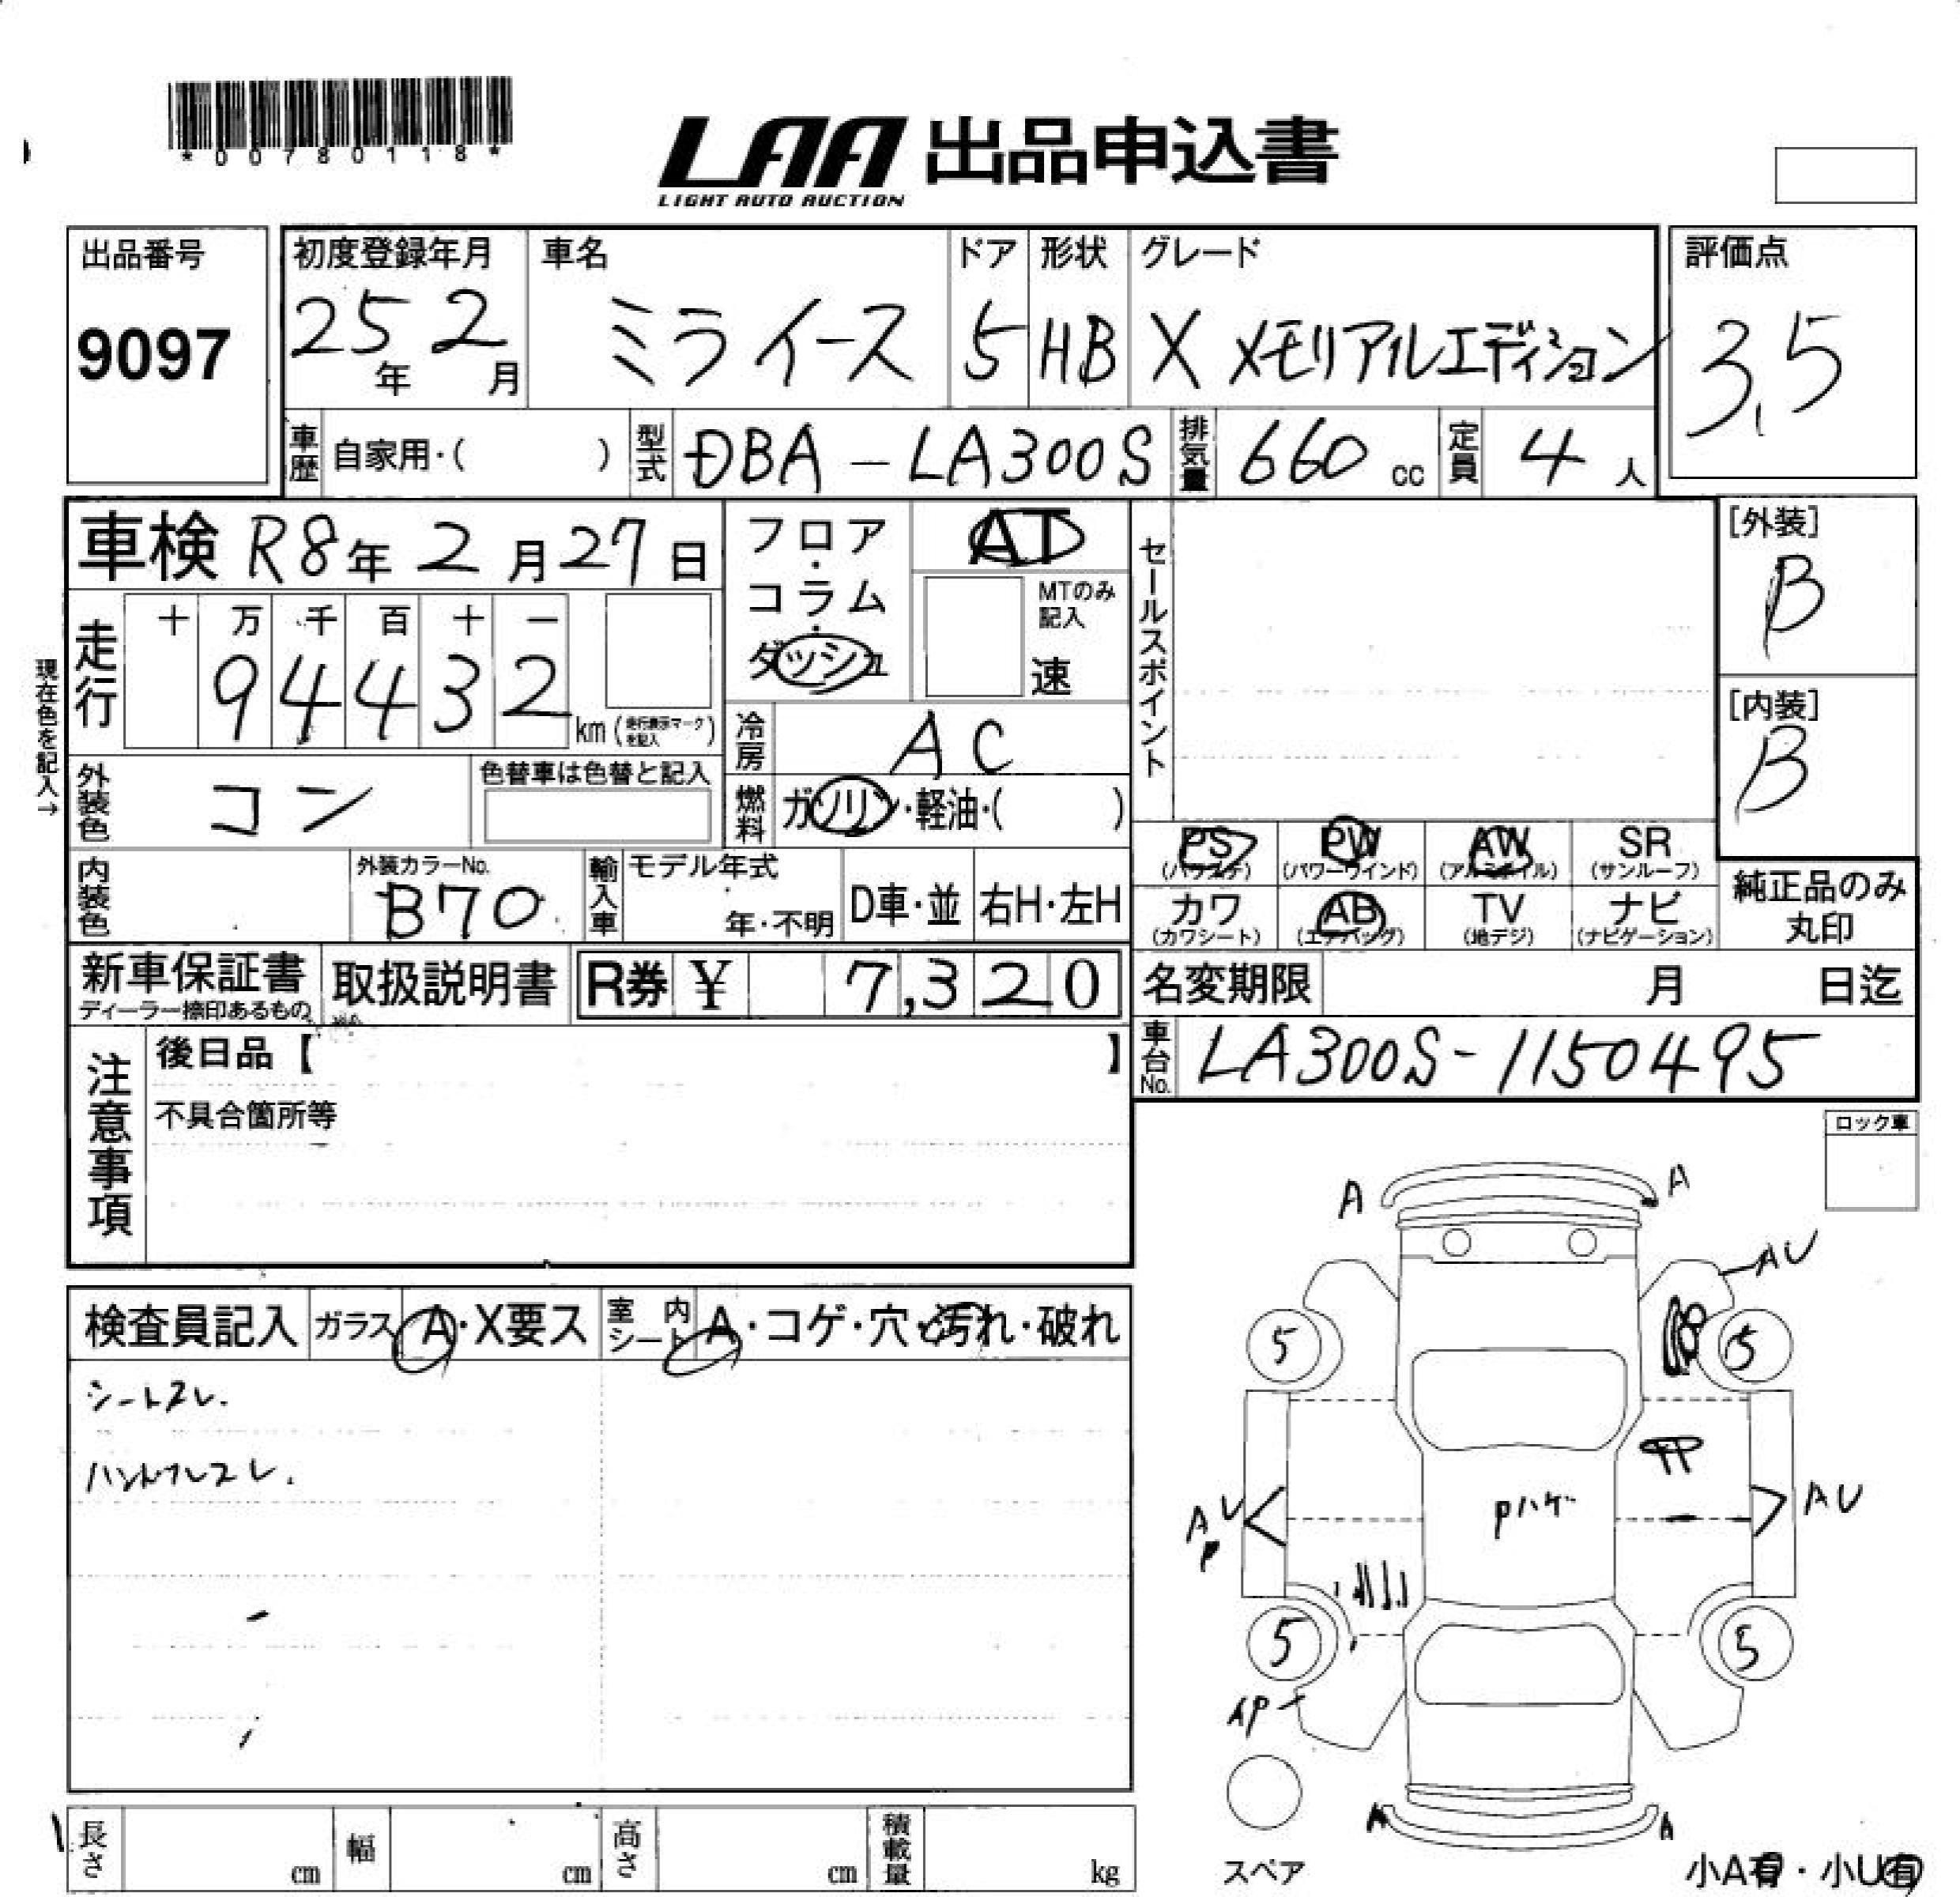 *00780118*
LAA 出品申込書
LIGHT AUTO AUCTION
出品番号
9097
初度登録年月
25年 2月
車名
ミライース
ドア
5
形状
HB
グレード
X メモリアルエディション
評価点
3.5
車歴 自家用・( )
型式 DBA-LA300S
排気量 660 cc
定員 4 人
車検 R8年 2月27日
フロア・コラム・ダッシュ
AT
MTのみ記入
速
セールスポイント
[外装]
B
[内装]
B
走行
十 万 千 百 十 一
94432 km (走行表示マークを記入)
現在色を記入→
冷房 AC
外装色 コン
色替車は色替と記入
燃料 ガソリン・軽油・( )
PS (パワステ)
PW (パワーウインド)
AW (アルミホイル)
SR (サンルーフ)
カワ (カワシート)
AB (エアバッグ)
TV (地デジ)
ナビ (ナビゲーション)
純正品のみ丸印
内装色
外装カラーNo.
B70
輸入車
モデル年式
年・不明
D車・並
右H・左H
新車保証書
ディーラー捺印あるもの
取扱説明書
R券 ¥ 7,320
名変期限 月 日迄
車台No. LA300S-1150495
注意事項
後日品【 】
不具合箇所等
ロック車
検査員記入
ガラス A・X要ス
室内シート A・コゲ・穴・汚れ・破れ
シートスレ.
A A
AU
5 5
AU
P
Pハゲ
AU
5 5
AP
A A
スペア
小A有・小U有
長さ cm
幅 cm
高さ cm
積載量 kg